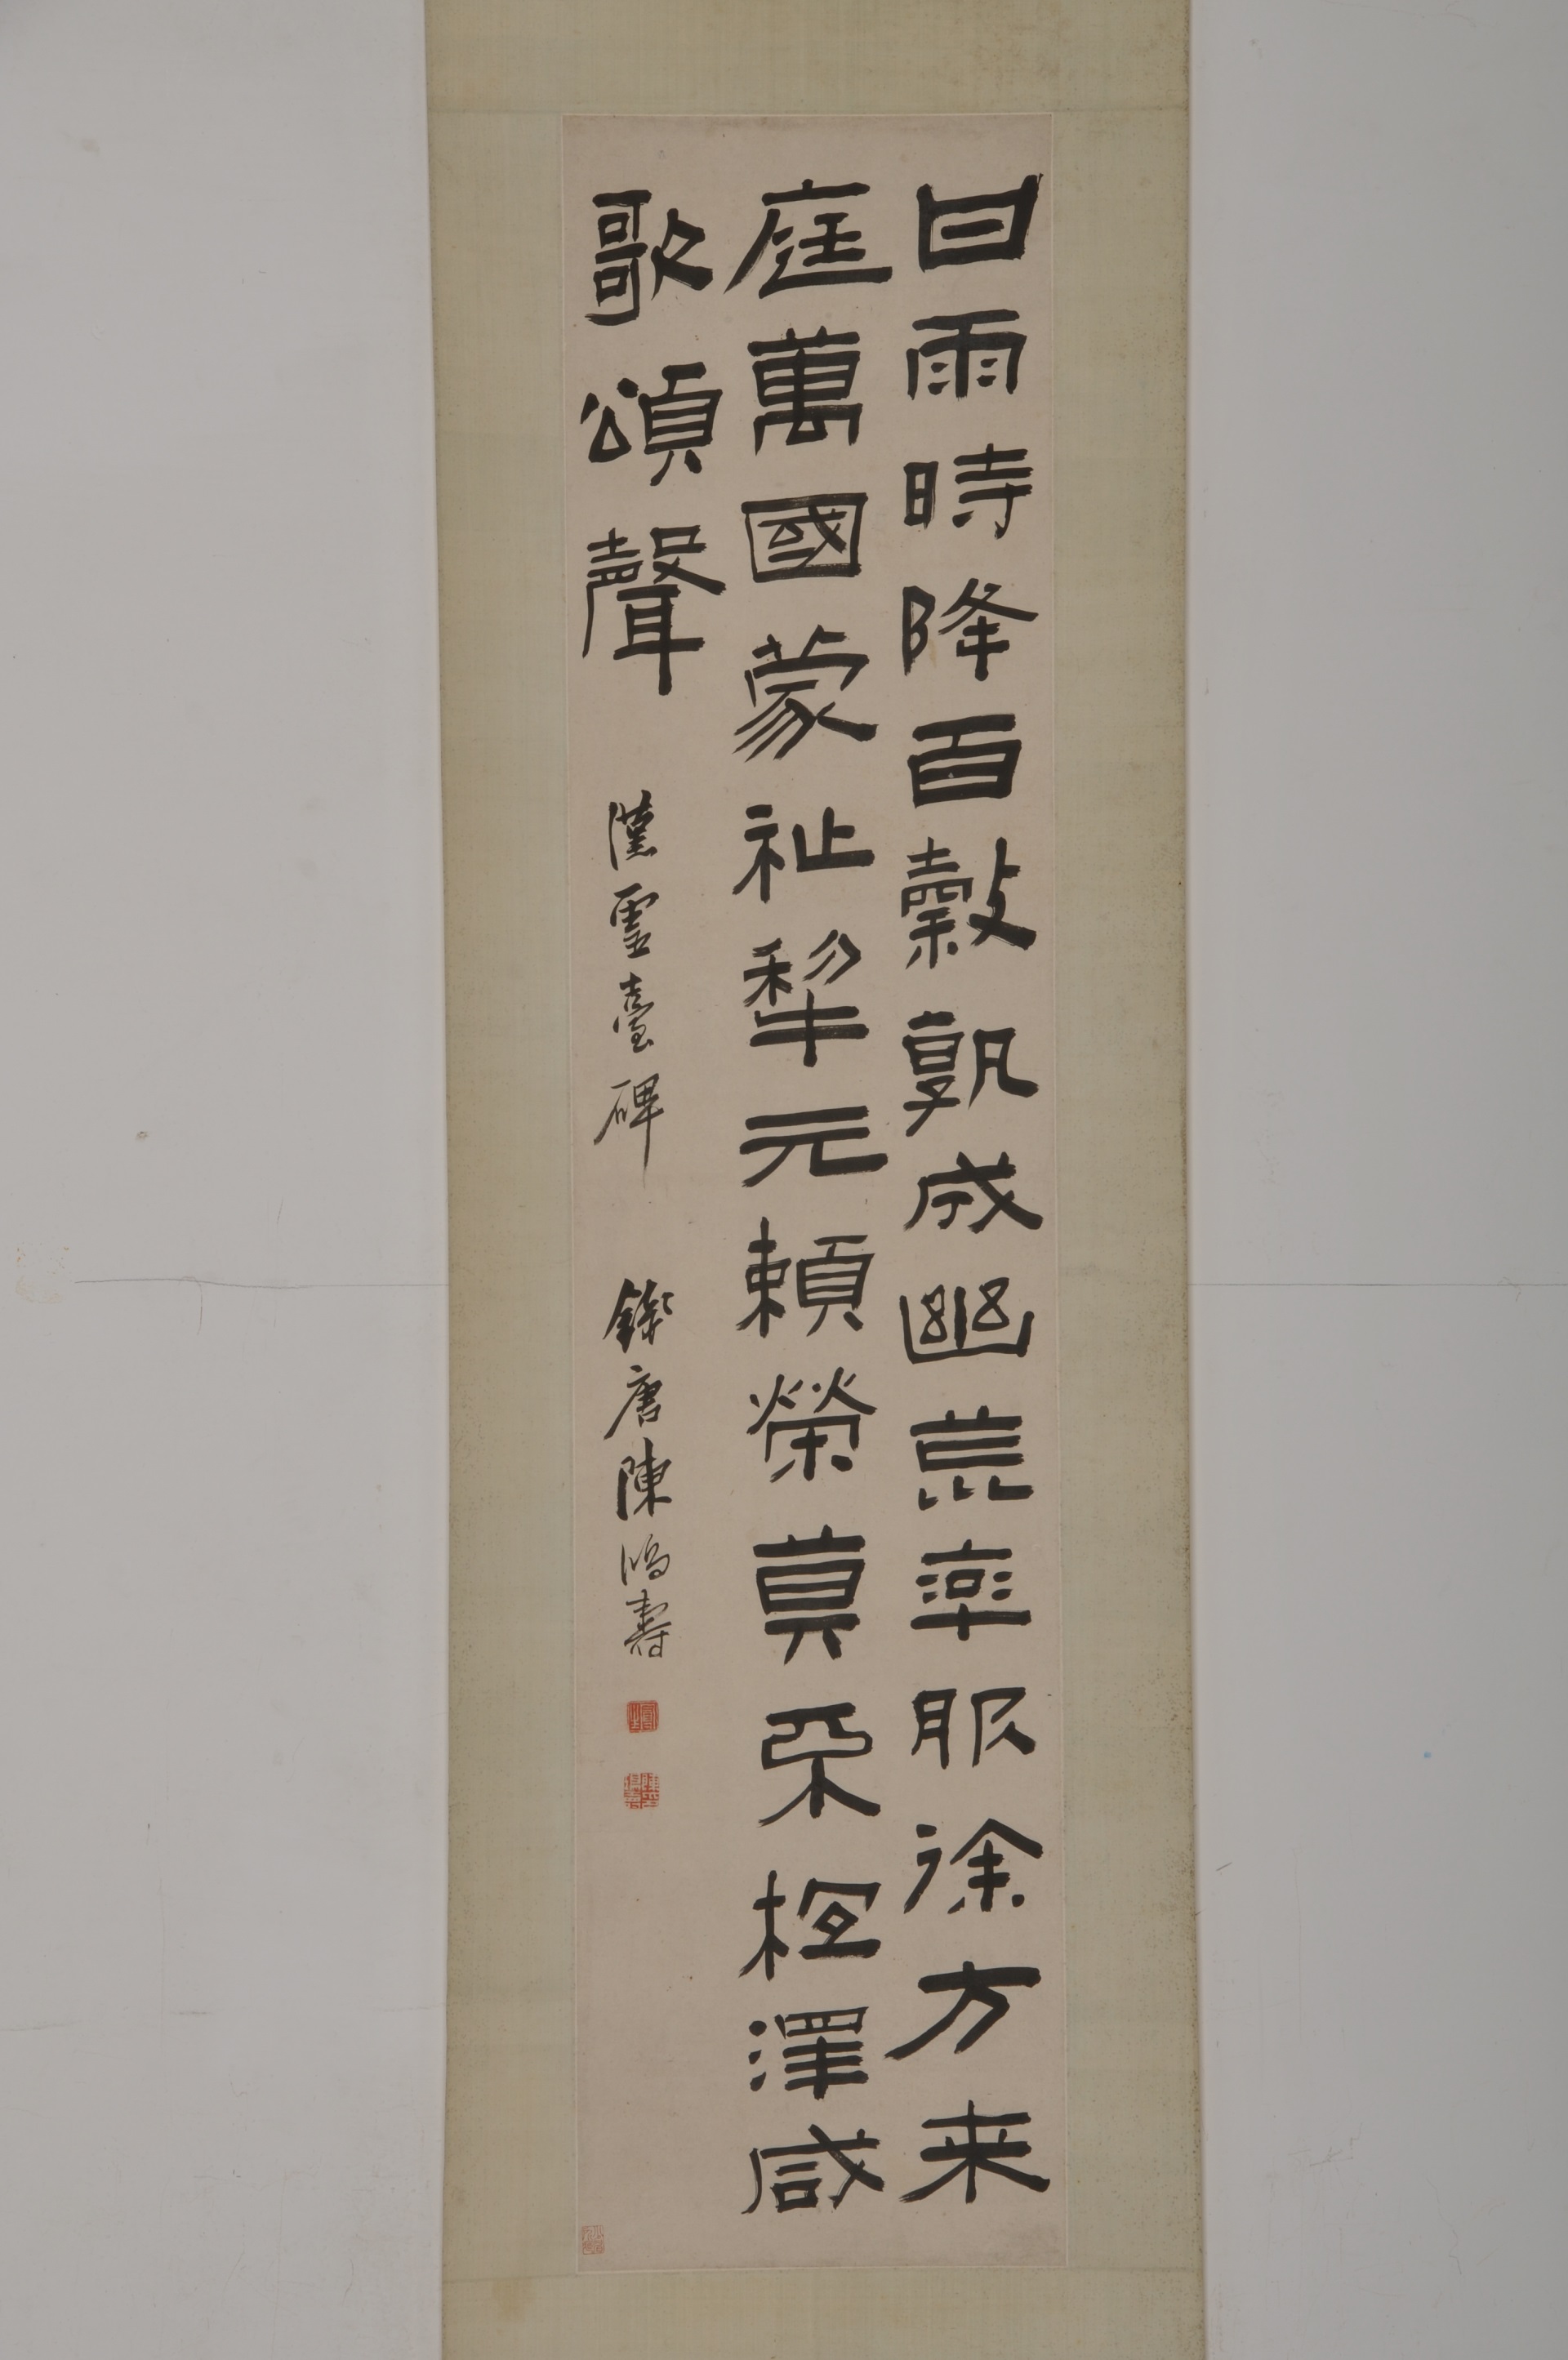 甘雨時降百穀孰成幽荒率服徐方来
庭萬國蒙祉犂元賴榮莫澤咸
歌頌聲 漢靈臺碑 錢唐陳鴻壽